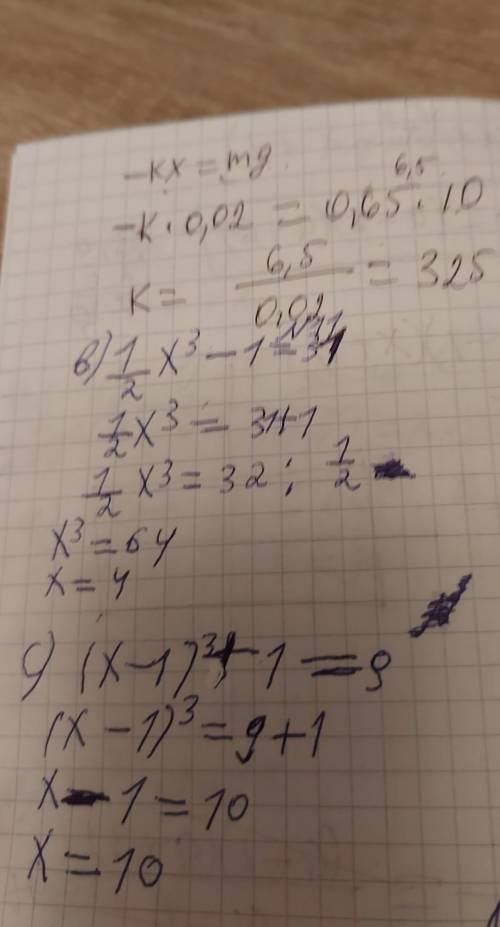 -kx = mg
-k · 0,02 = 0,65 · 10
6,5
k = 6,5/0,02 = 325
в) 1/2 x³ - 1 = 31
1/2 x³ = 31+1
1/2 x³ = 32 : 1/2
x³ = 64
x = 4
c) (x-1)³ + 1 = 9
(x-1)³ = 9+1
x-1 = 10
x = 10